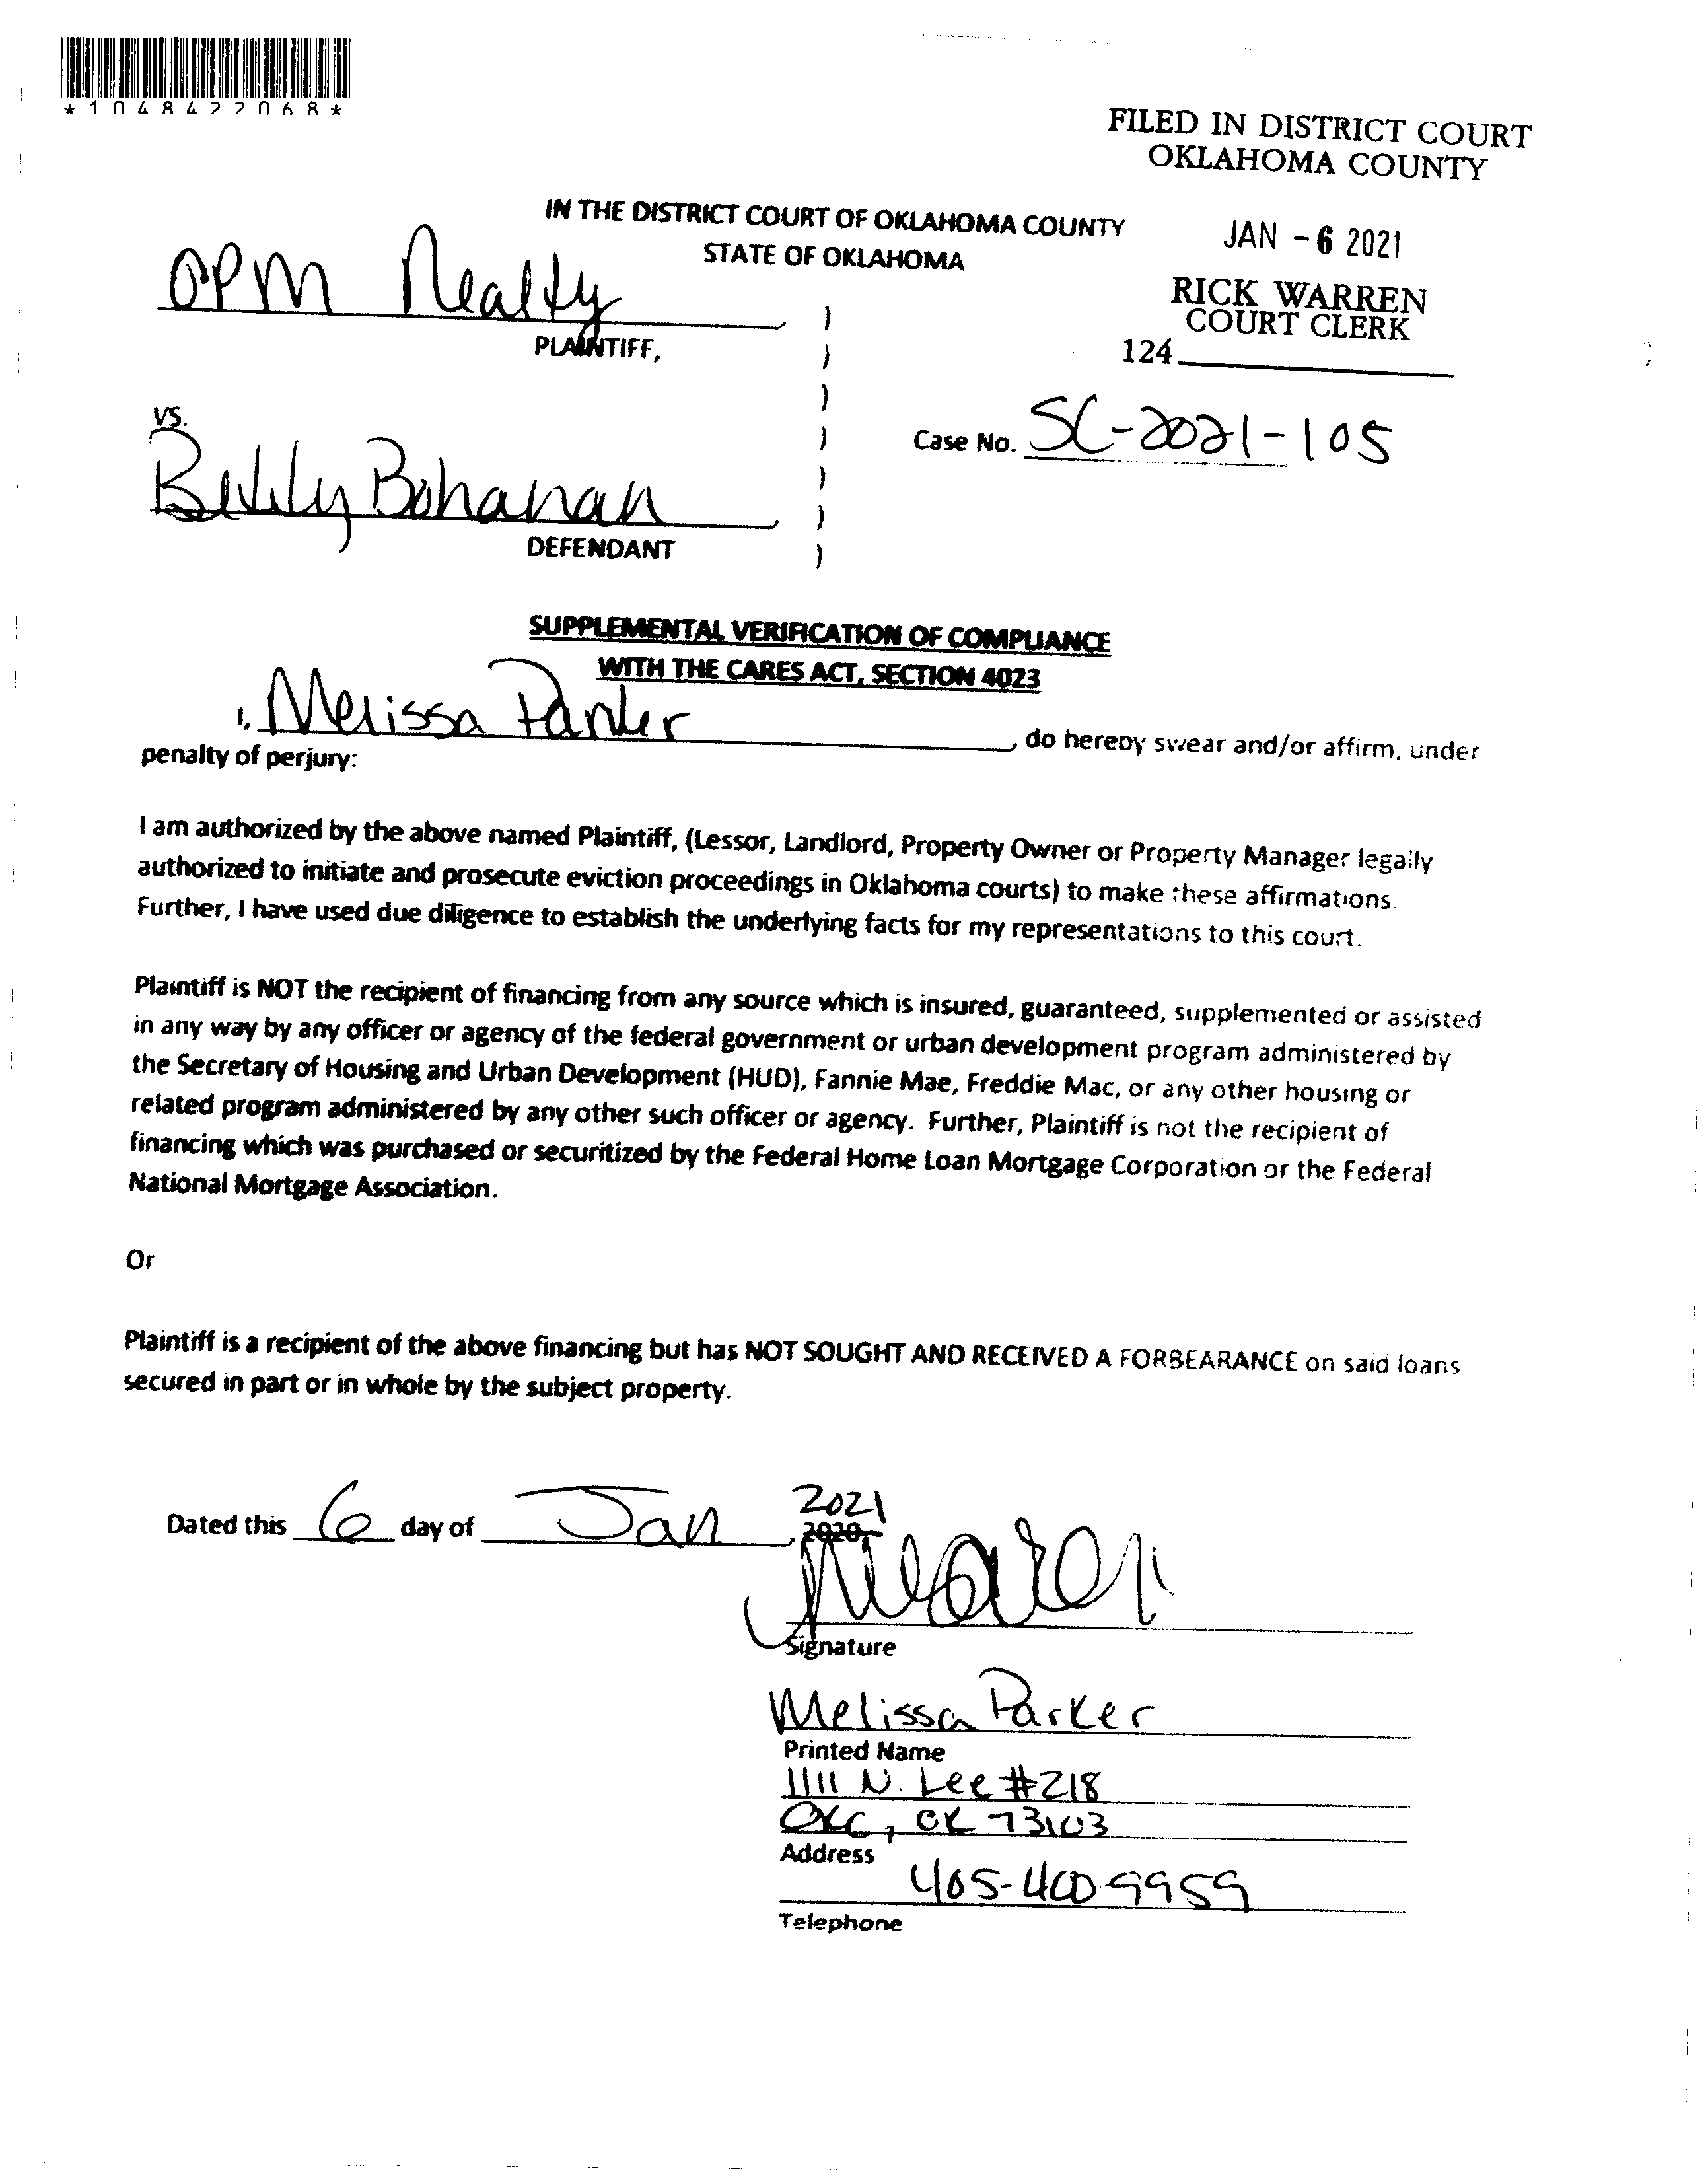 *1048422068*
FILED IN DISTRICT COURT
OKLAHOMA COUNTY
IN THE DISTRICT COURT OF OKLAHOMA COUNTY
STATE OF OKLAHOMA
JAN - 6 2021
RICK WARREN
COURT CLERK
124
OPM Realty
PLAINTIFF,
VS.
Case No. SC-2021-105
Bohanan
DEFENDANT
SUPPLEMENTAL VERIFICATION OF COMPLIANCE
WITH THE CARES ACT, SECTION 4023
I, Melissa Parker, do hereby swear and/or affirm, under
penalty of perjury:
I am authorized by the above named Plaintiff, (Lessor, Landlord, Property Owner or Property Manager legally
authorized to initiate and prosecute eviction proceedings in Oklahoma courts) to make these affirmations.
Further, I have used due diligence to establish the underlying facts for my representations to this court.
Plaintiff is NOT the recipient of financing from any source which is insured, guaranteed, supplemented or assisted
in any way by any officer or agency of the federal government or urban development program administered by
the Secretary of Housing and Urban Development (HUD), Fannie Mae, Freddie Mac, or any other housing or
related program administered by any other such officer or agency. Further, Plaintiff is not the recipient of
financing which was purchased or securitized by the Federal Home Loan Mortgage Corporation or the Federal
National Mortgage Association.
Or
Plaintiff is a recipient of the above financing but has NOT SOUGHT AND RECEIVED A FORBEARANCE on said loans
secured in part or in whole by the subject property.
2021
Dated this 6 day of Jan, 2020.
Signature
Melissa Parker
Printed Name
1111 N. Lee #218
OKC, OK 73103
Address
405-400-9959
Telephone